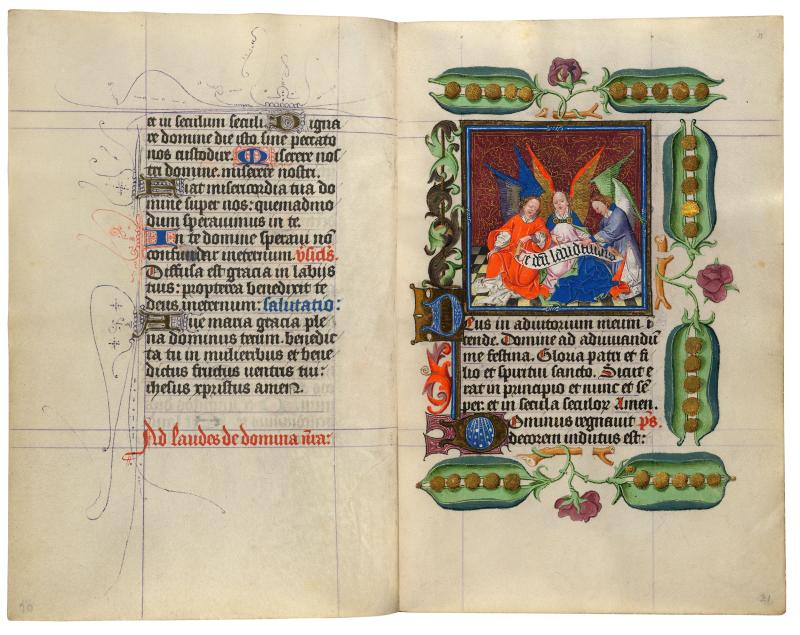 et in seculum seculi. Digna
re domine die isto sine peccato
nos custodire. Miserere nos
tri domine. miserere nostri.
Fiat misericordia tua do
mine super nos: quemadmo
dum speravimus in te.
In te domine speravi nō
confundar ineternum. v̄sicl̄s.
Diffusa est gracia in labijs
tuis: propterea benedixit te
deus ineternum: salutatio:
Aue maria gracia ple
na dominus tecum. benedic
ta tu in mulieribus et bene
dictus fructus uentris tui:
ihesus xpristus amen.
Ad laudes de domina n̄ra:
20
Te deū laudamus
Deus in adiutorium meum i
tende. Domine ad adiuuandū
me festina. Gloria patri et fi
lio et spiritui sancto. Sicut e
rat in principio et nunc et sē
per: et in secula seculor Amen.
Dominus regnauit p̄s.
decorem indutus est:
21